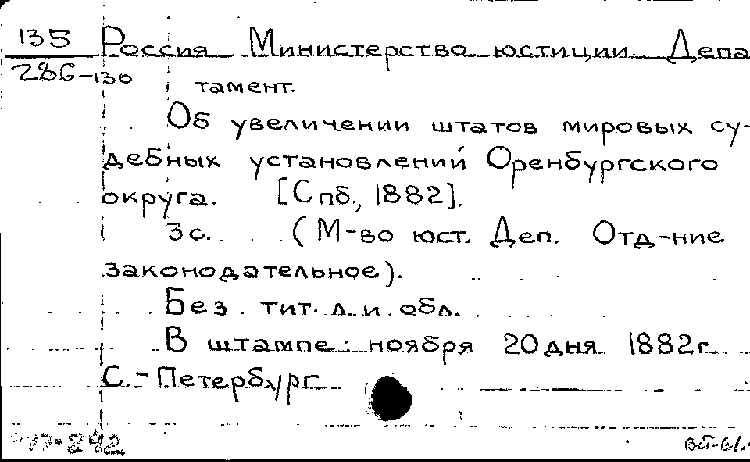 135 Россия Министерство юстиции Депа
286-130 тамент.
Об увеличении штатов мировых су-
дебных установлений Оренбургского
округа. [Спб., 1882].
3с. (М-во юст. Деп. Отд-ние
законодательное).
Без тит. л. и обл.
В штампе: ноября 20 дня 1882г.
С.-Петербург